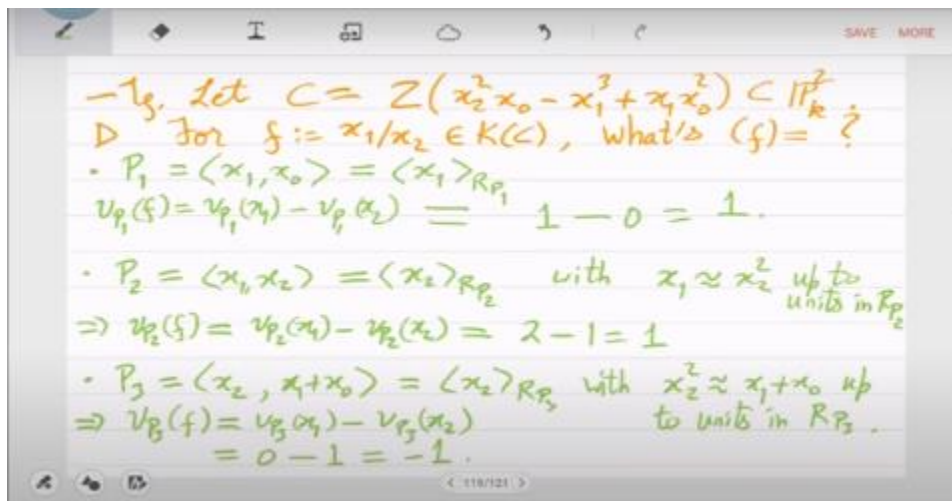 SAVE MORE
– Eg. Let C = Z(x₂²x₀ – x₁³ + x₁x₀²) ⊂ ℙ²ₖ.
D For f := x₁/x₂ ∈ K(C), what's (f) = ?
• P₁ = ⟨x₁, x₀⟩ = ⟨x₁⟩_{R_{P₁}}
v_{P₁}(f) = v_{P₁}(x₁) – v_{P₁}(x₂) = 1 – 0 = 1.
• P₂ = ⟨x₁, x₂⟩ = ⟨x₂⟩_{R_{P₂}} with x₁ ≈ x₂² up to units in R_{P₂}
⇒ v_{P₂}(f) = v_{P₂}(x₁) – v_{P₂}(x₂) = 2 – 1 = 1
• P₃ = ⟨x₂, x₁+x₀⟩ = ⟨x₂⟩_{R_{P₃}} with x₂² ≈ x₁+x₀ up
⇒ v_{P₃}(f) = v_{P₃}(x₁) – v_{P₃}(x₂) to units in R_{P₃}.
= 0 – 1 = –1.
< 119/121 >